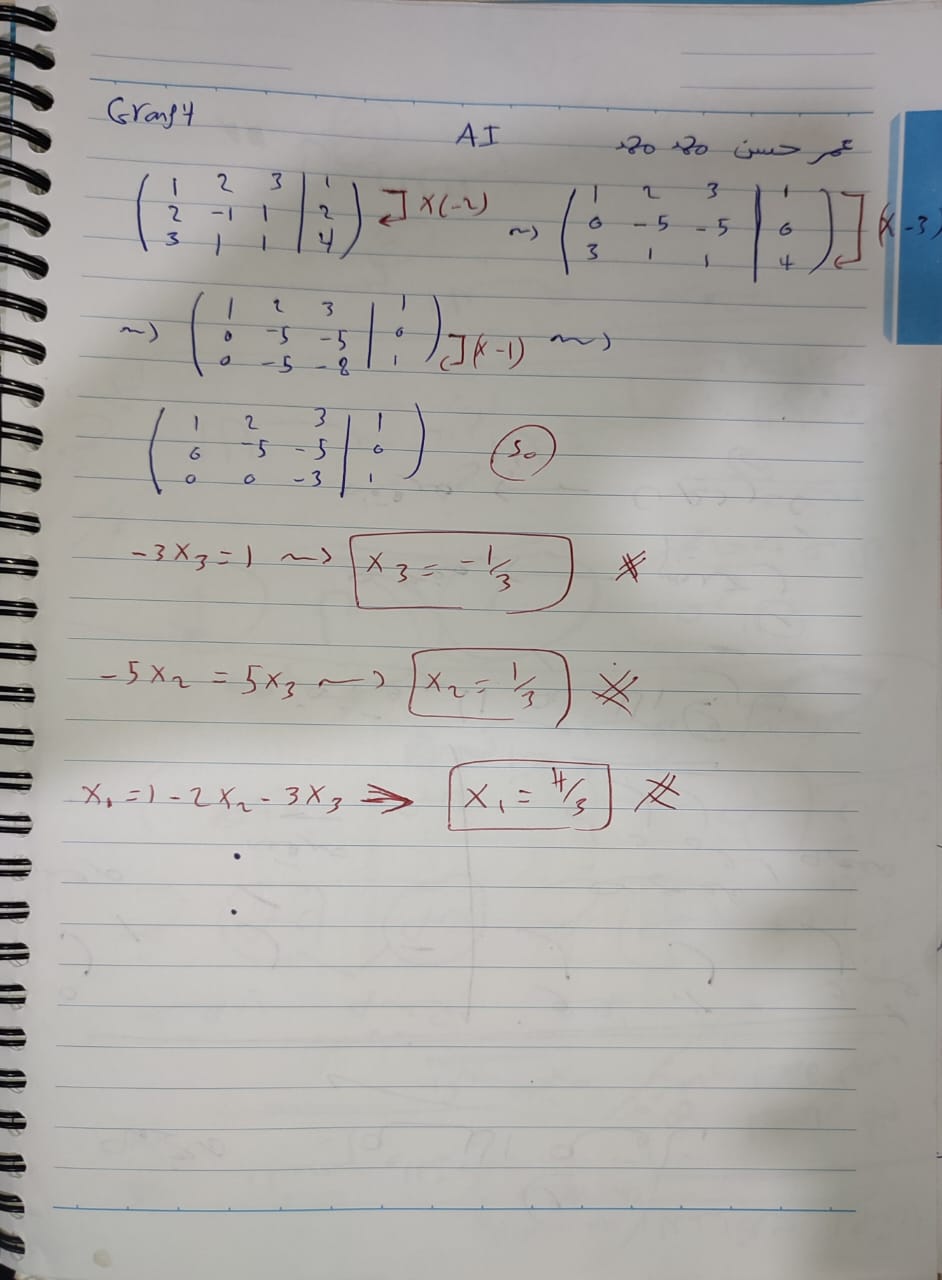 Group 4
AI
عمر حسن محمد محمد
( 1 2 3 | 1
2 -1 1 | 2
3 1 1 | 4 ) ] x(-2)
~> ( 1 2 3 | 1
0 -5 -5 | 0
3 1 1 | 4 ) ] (x -3)
~> ( 1 2 3 | 1
0 -5 -5 | 0
0 -5 -8 | 1 ) ] (x -1) ~>
( 1 2 3 | 1
0 -5 -5 | 0
0 0 -3 | 1 ) So
-3x₃ = 1 ~> x₃ = -1/3
-5x₂ = 5x₃ ~> x₂ = 1/3
x₁ = 1 - 2x₂ - 3x₃ ⇒ x₁ = 4/3